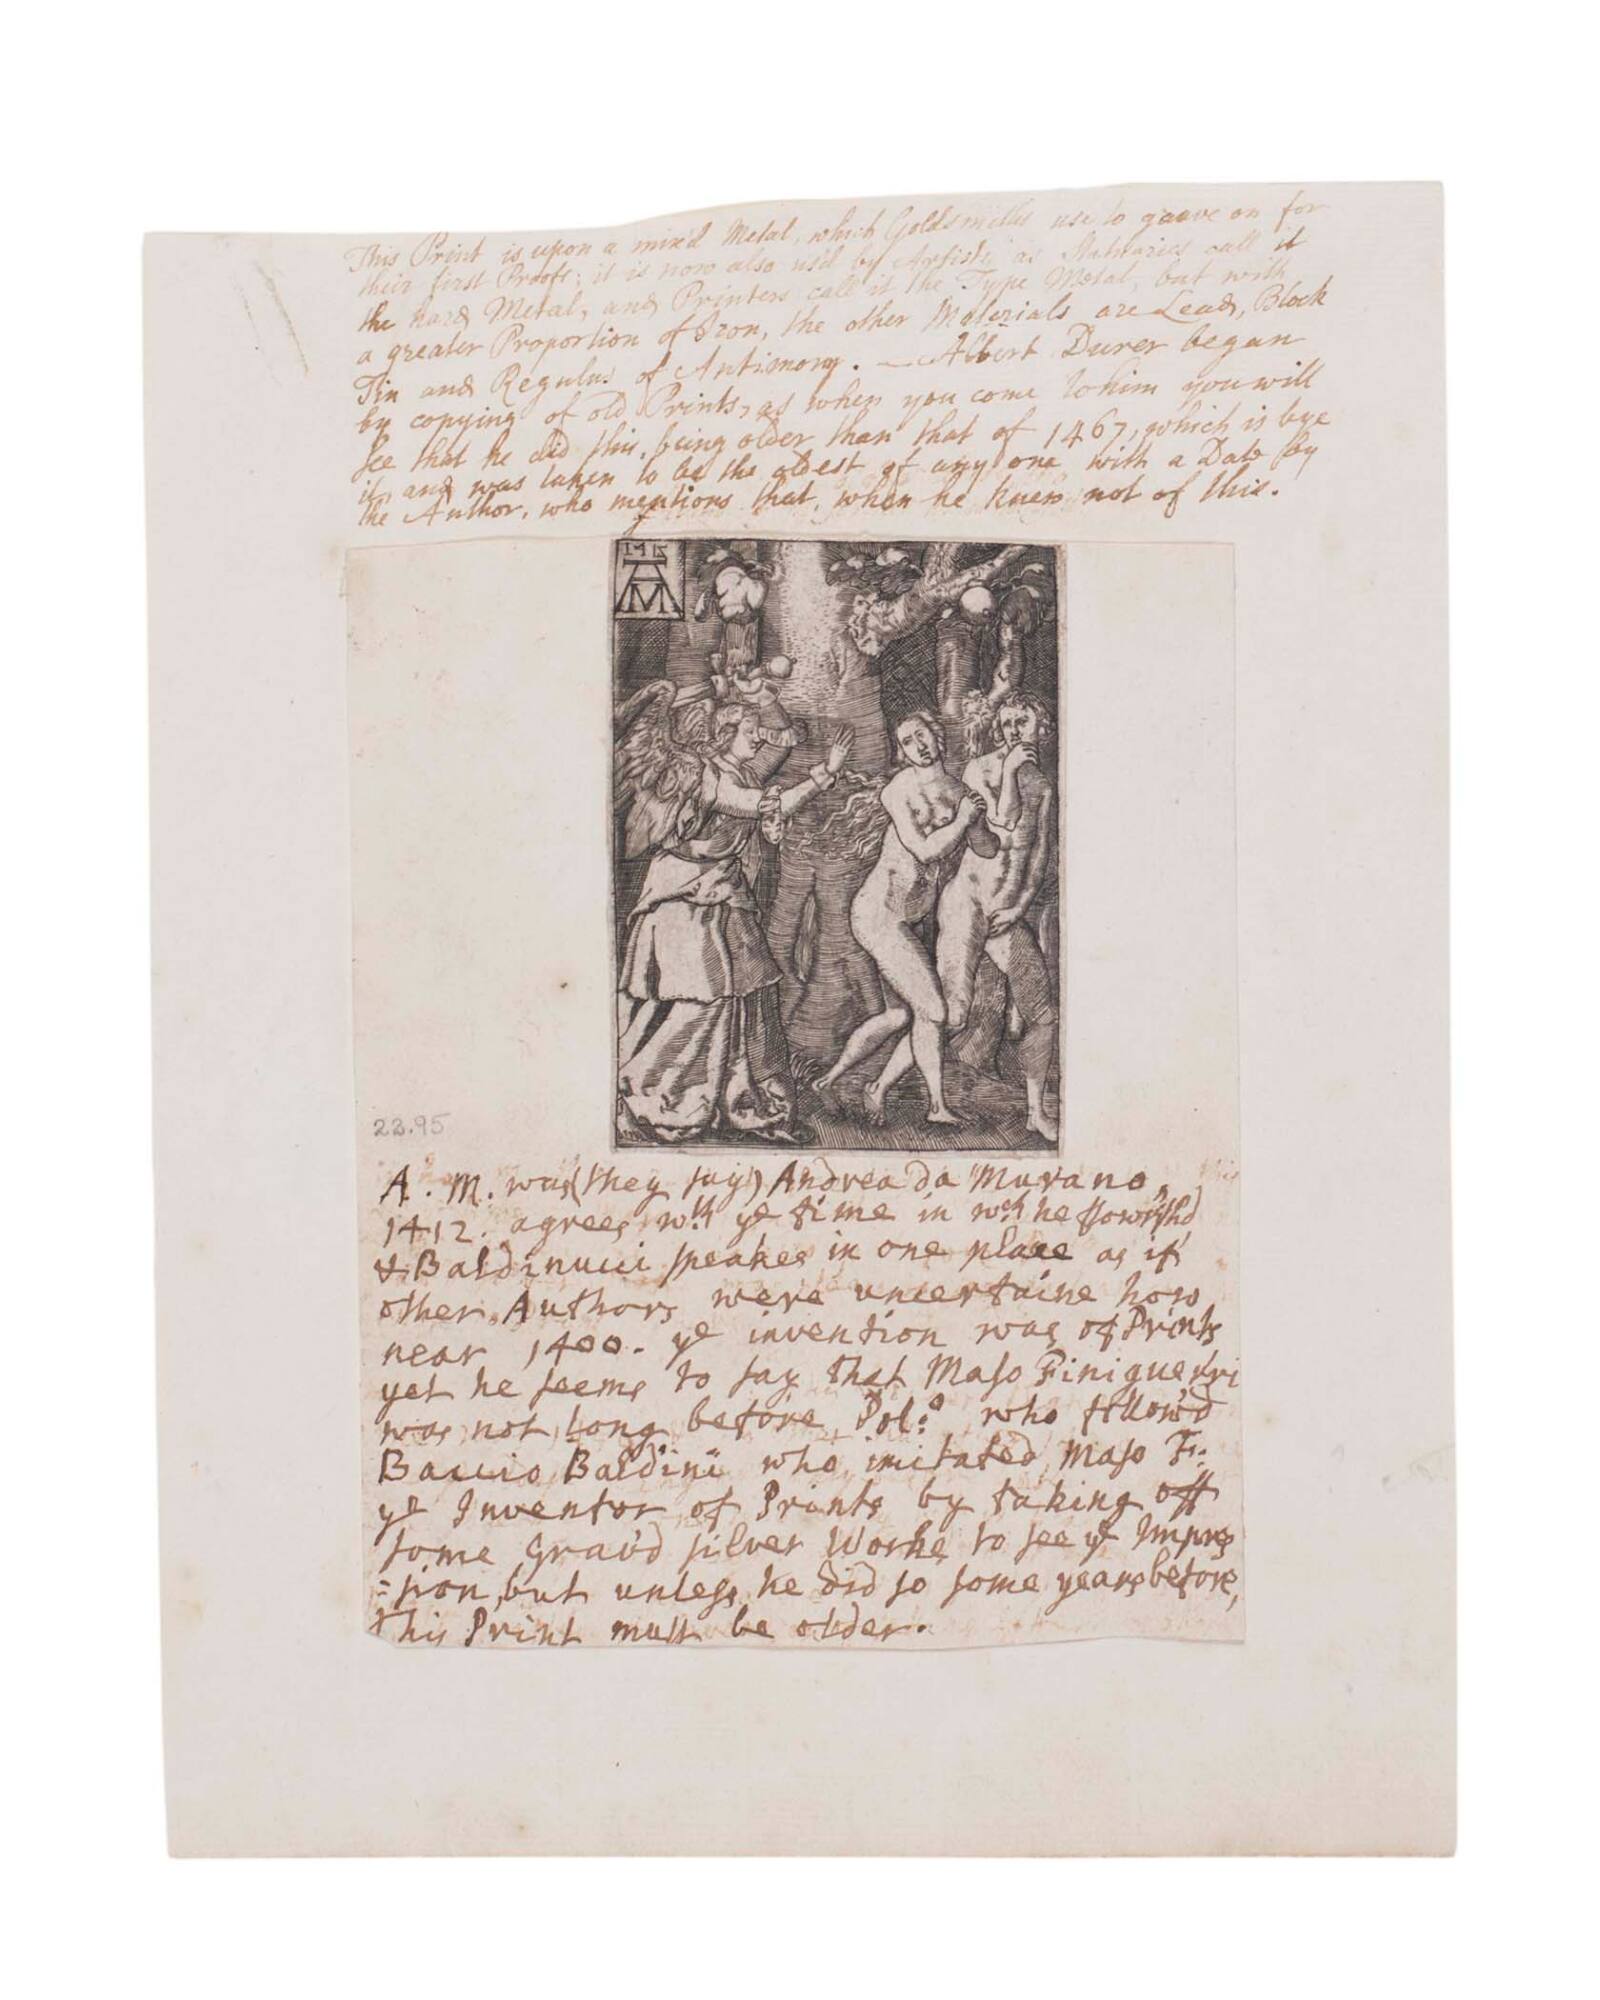 This Print is upon a mix'd Metal, which Goldsmiths use to grave on for
their first Proofs; it is now also us'd by Artists, as Statuaries call it
the hard Metal, and Printers call it the Type Metal, but with
a greater Proportion of Iron, the other Materials are Lead, Block
Tin and Regulus of Antimony. — Albert Durer began
by copying of old Prints, as when you come to him you will
see that he did this, being older than that of 1467, which is bye
it, and was taken to be the oldest of any one with a Date by
the Author, who mentions that, when he knew not of this.
AM
22.95
A. M. was (they say) Andrea da Murano,
1412. agrees wth ye time in wch he flowrishd
& Baldinucci speakes in one place as if
other Authors were uncertaine how
near 1400. ye invention was of Prints
yet he seems to say that Maso Finiguerri
was not long before Pol:o who follow'd
Baccio Baldini who imitated Maso F:
ye Inventor of Prints by taking off
some Grav'd silver Worke to see ye Impres
=sion, but unless he did so some years before,
this Print must be older.